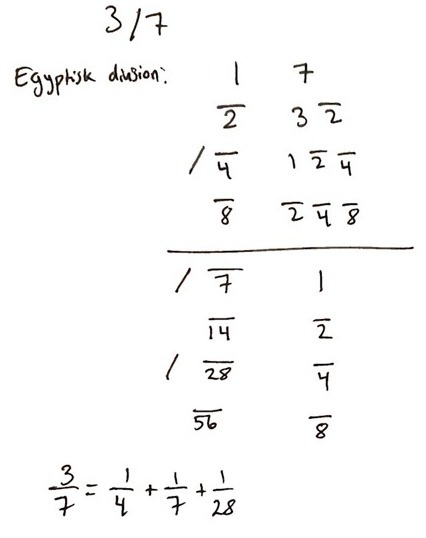 3/7
Egyptisk division: 1 7
2̅ 3 2̅
/ 4̅ 1 2̅ 4̅
8̅ 2̅ 4̅ 8̅
/ 7̅ 1
1̅4̅ 2̅
/ 2̅8̅ 4̅
5̅6̅ 8̅
3/7 = 1/4 + 1/7 + 1/28